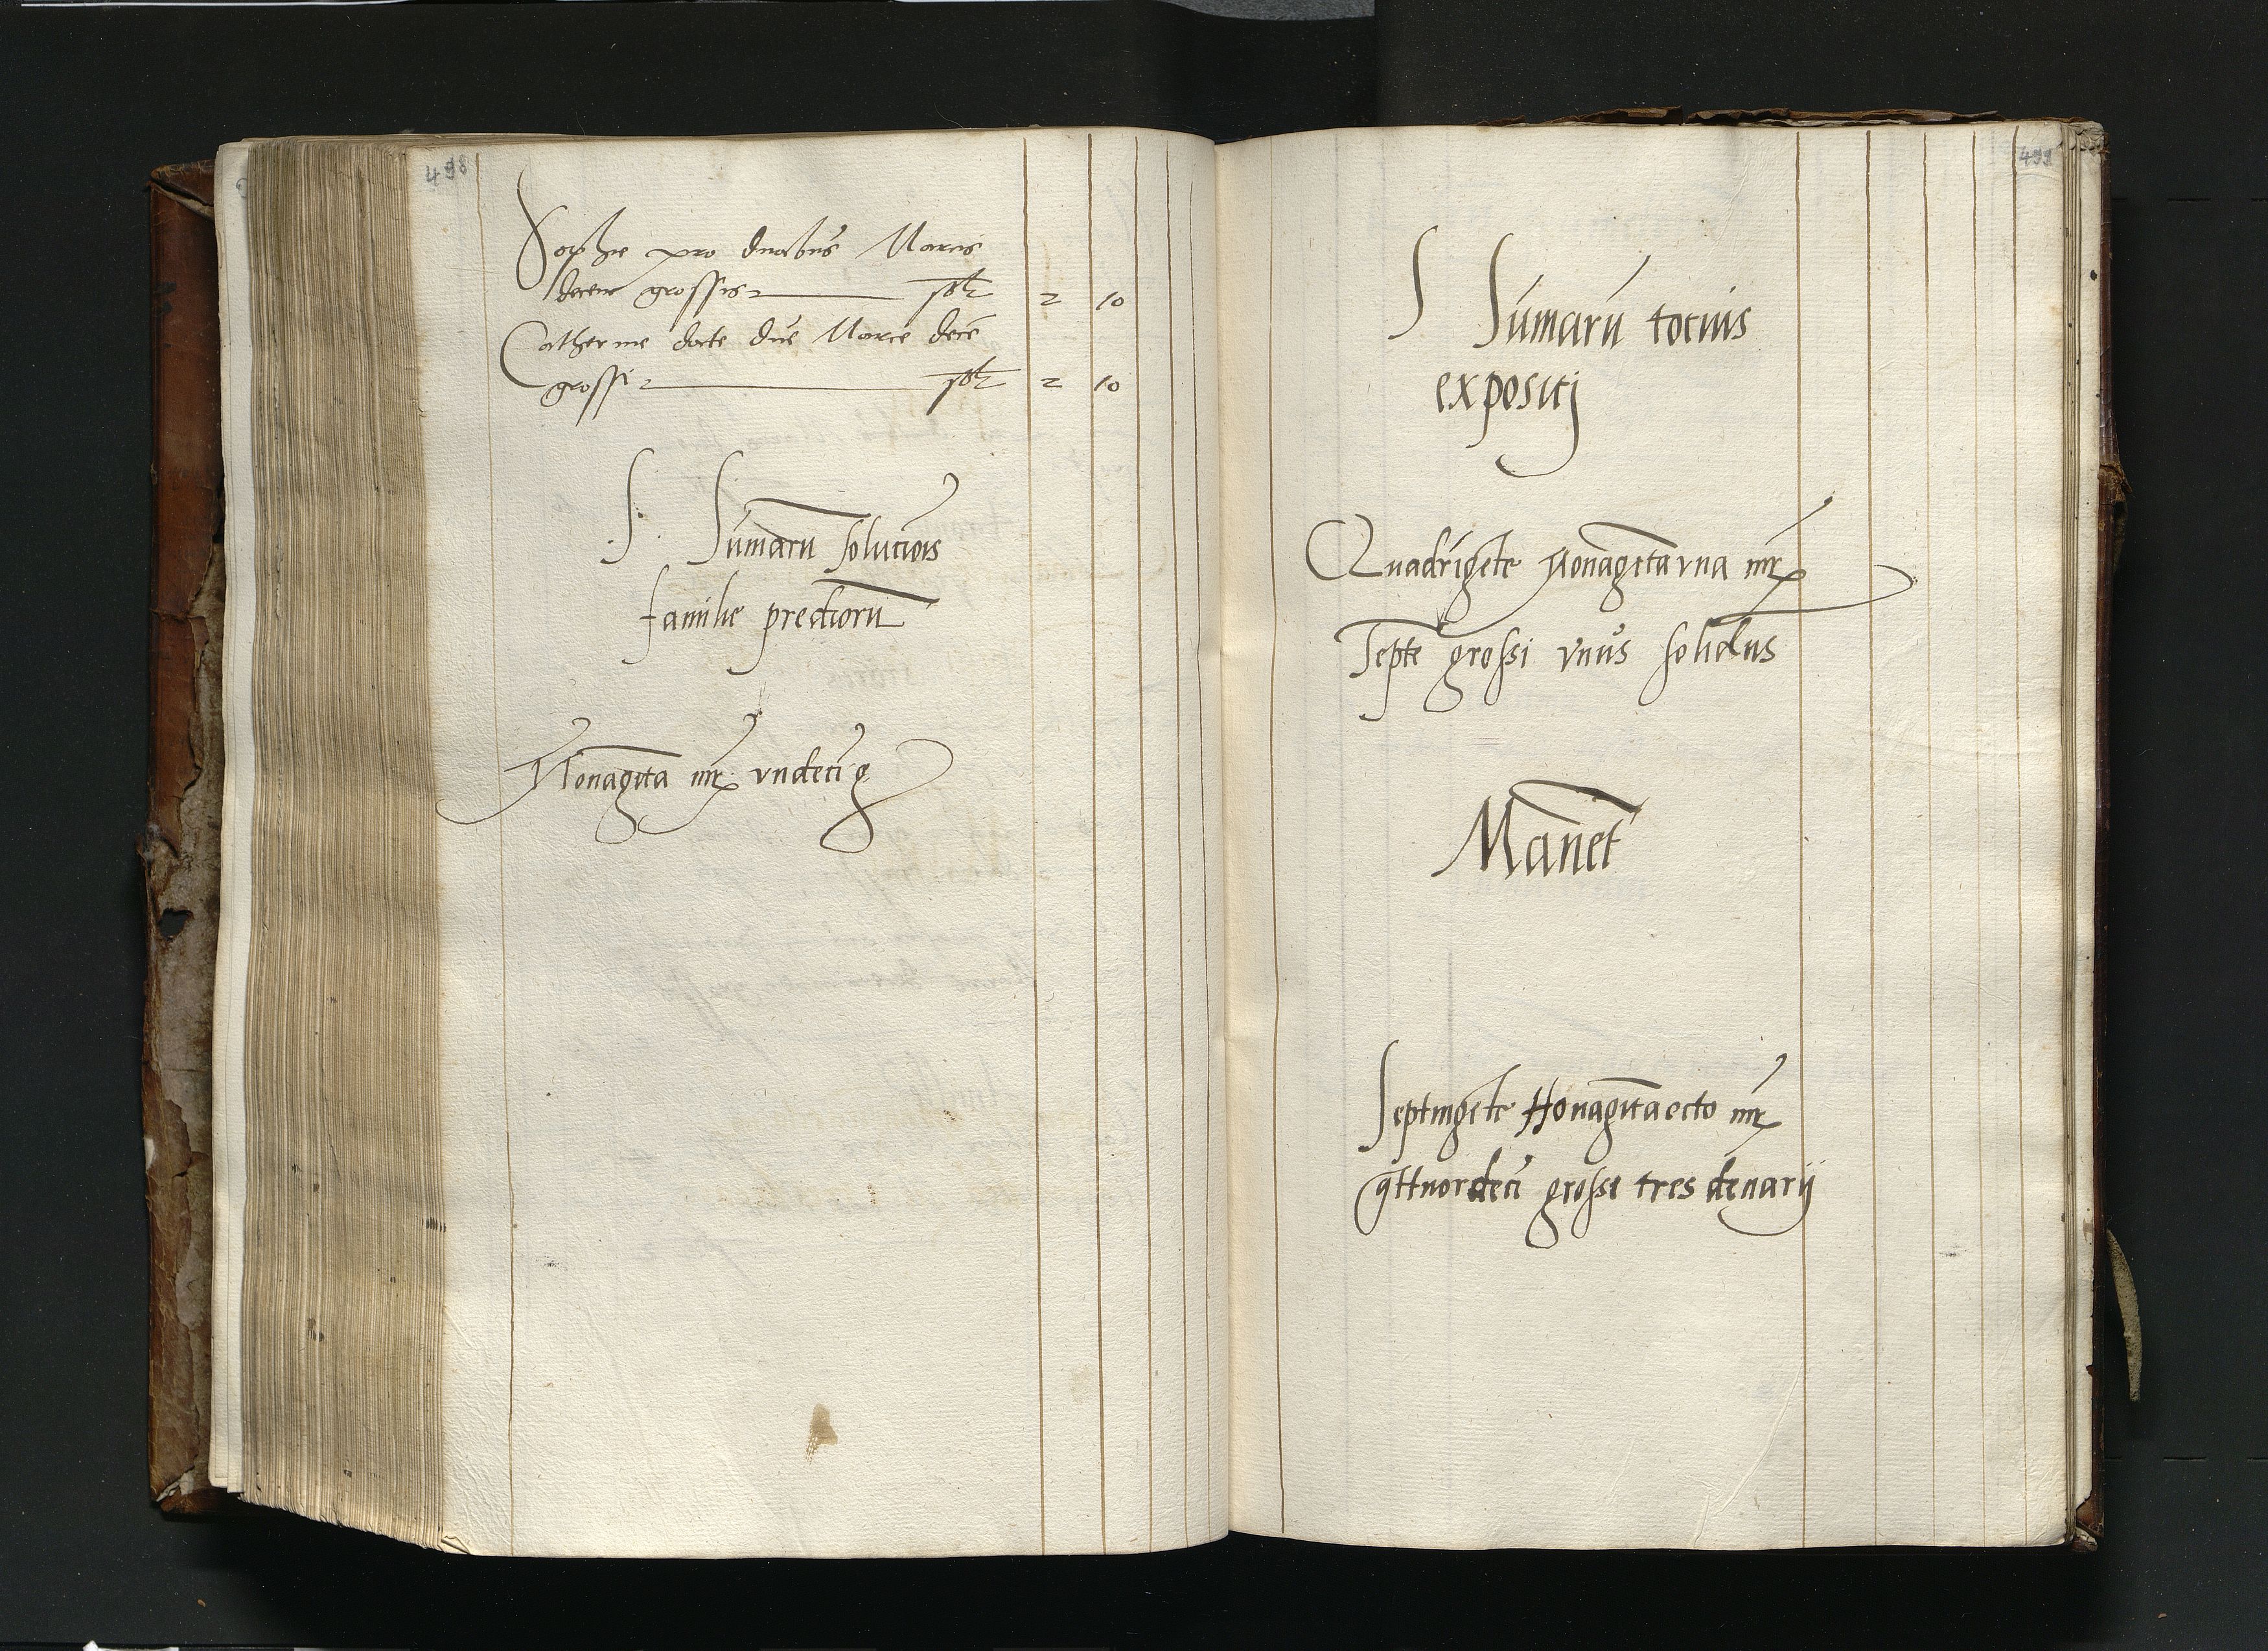 498
Sophie pro duabus Marcis
decem grossis 2 10
Catherine date due Marce decē
grossi 2 10
S. Sumarū soluciois
familie predictorū
Nonagīta mr̄ undecī g
499
S Sumarū tocius
expositj
Quadrigēte Nonagīta vna mr̄
Septē grossi vnus solidus
Manet
Septingēte Nonagīta octo mr̄
qttuordecī grossi tres denarij